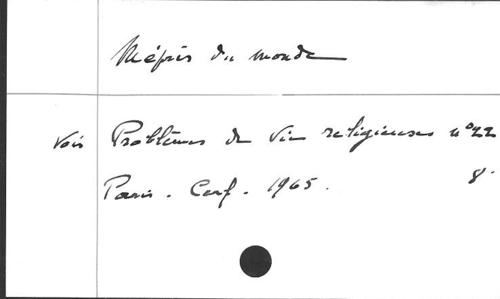 Mépris du monde
Voir Problèmes de Vie religieuses n° 22
Paris. Cerf. 1965. 8.